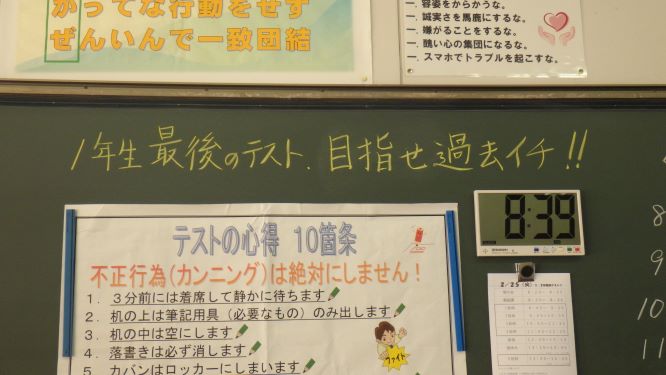 がってな行動をせず
ぜんいんで一致団結
一. 容姿をからかうな。
一. 誠実さを馬鹿にするな。
一. 嫌がることをするな。
一. 醜い心の集団になるな。
一. スマホでトラブルを起こすな。
1年生最後のテスト、目指せ過去イチ!!
8:39
テストの心得 10箇条
不正行為(カンニング)は絶対にしません!
1. 3分前には着席して静かに待ちます
2. 机の上は筆記用具(必要なもの)のみ出します
3. 机の中は空にします
4. 落書きは必ず消します
5. カバンはロッカーにしまいます
ファイト
2/25
8
9
10
11